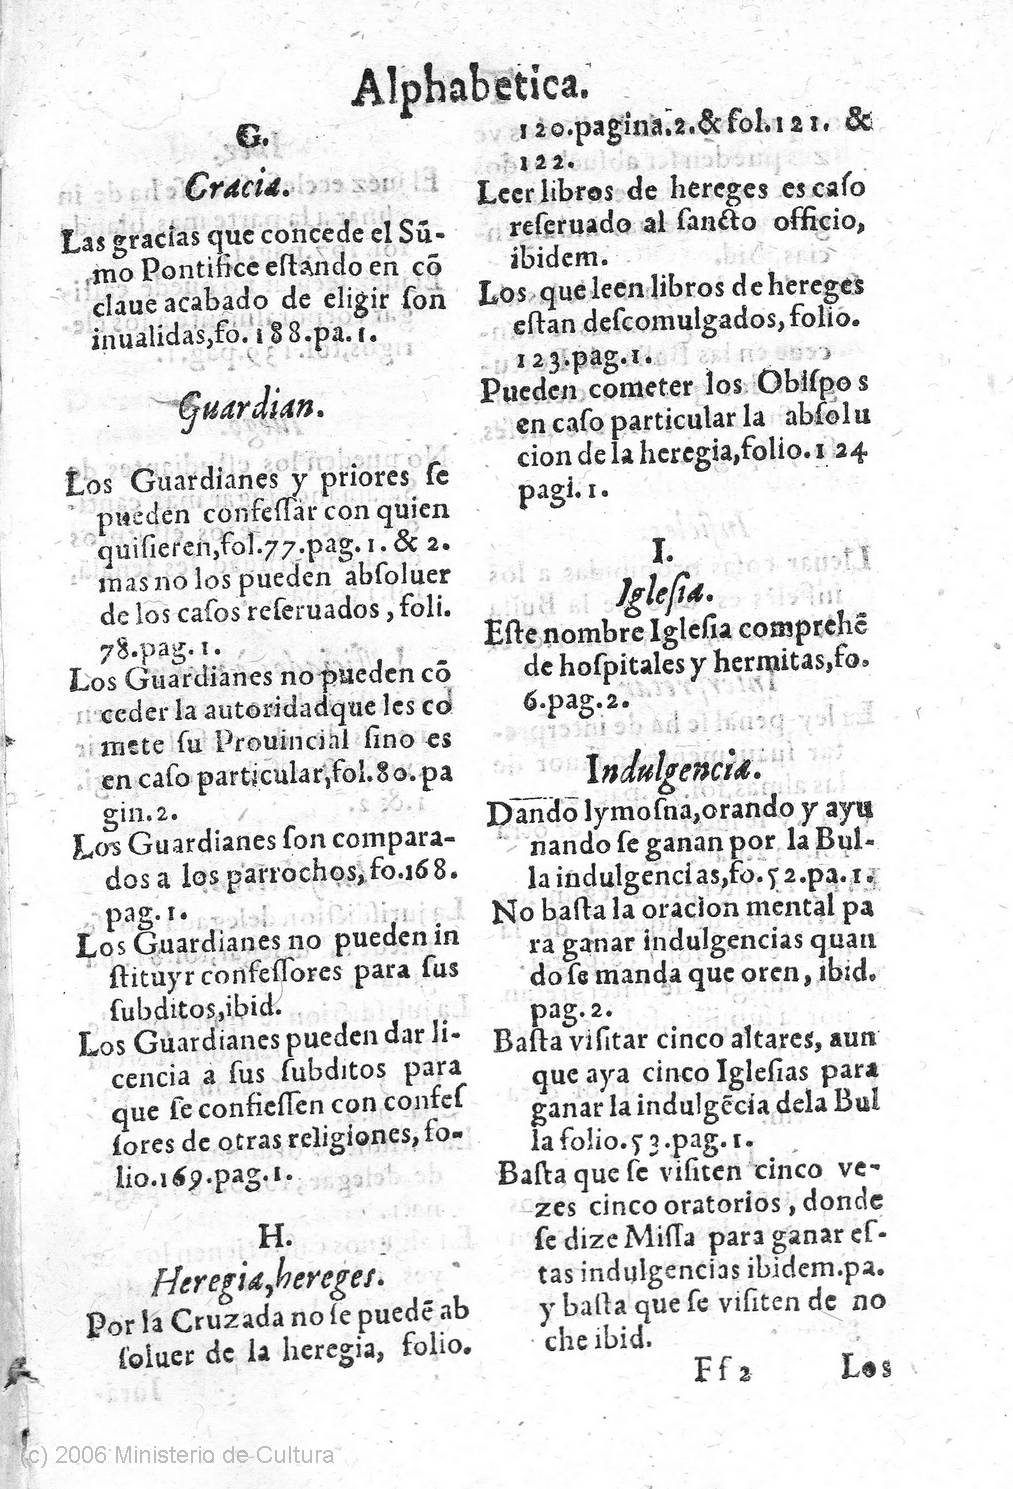 Alphabetica.
G.
Gracia.
Las gracias que concede el Sū-
mo Pontifice eſtando en cō
claue acabado de eligir ſon
inualidas,fo.188.pa.1.
Guardian.
Los Guardianes y priores ſe
pueden confeſſar con quien
quiſieren,fol.77.pag.1.& 2.
mas no los pueden abſoluer
de los caſos reſeruados, foli.
78.pag.1.
Los Guardianes no pueden cō
ceder la autoridadque les co
mete ſu Prouincial ſino es
en caſo particular,fol.80.pa
gin.2.
Los Guardianes ſon compara-
dos a los parrochos,fo.168.
pag.1.
Los Guardianes no pueden in
ſtituyr confeſſores para ſus
ſubditos,ibid.
Los Guardianes pueden dar li-
cencia a ſus ſubditos para
que ſe confieſſen con confeſ
ſores de otras religiones, fo-
lio.169.pag.1.
H.
Heregia,hereges.
Por la Cruzada no ſe puedē ab
ſoluer de la heregia, folio.
120.pagina.2.& fol.121. &
122.
Leer libros de hereges es caſo
reſeruado al ſancto officio,
ibidem.
Los que leen libros de hereges
eſtan deſcomulgados, folio.
123.pag.1.
Pueden cometer los Obiſpos
en caſo particular la abſolu
cion de la heregia,folio.124
pagi.1.
I.
Igleſia.
Eſte nombre Igleſia comprehē
de hoſpitales y hermitas,fo.
6.pag.2.
Indulgencia.
Dando lymoſna,orando y ayu
nando ſe ganan por la Bul-
la indulgencias,fo.52.pa.1.
No baſta la oracion mental pa
ra ganar indulgencias quan
do ſe manda que oren, ibid.
pag.2.
Baſta viſitar cinco altares, aun
que aya cinco Igleſias para
ganar la indulgēcia dela Bul
la folio.53.pag.1.
Baſta que ſe viſiten cinco ve-
zes cinco oratorios, donde
ſe dize Miſſa para ganar eſ-
tas indulgencias ibidem.pa.
y baſta que ſe viſiten de no
che ibid.
Ff2 Los
(c) 2006 Ministerio de Cultura